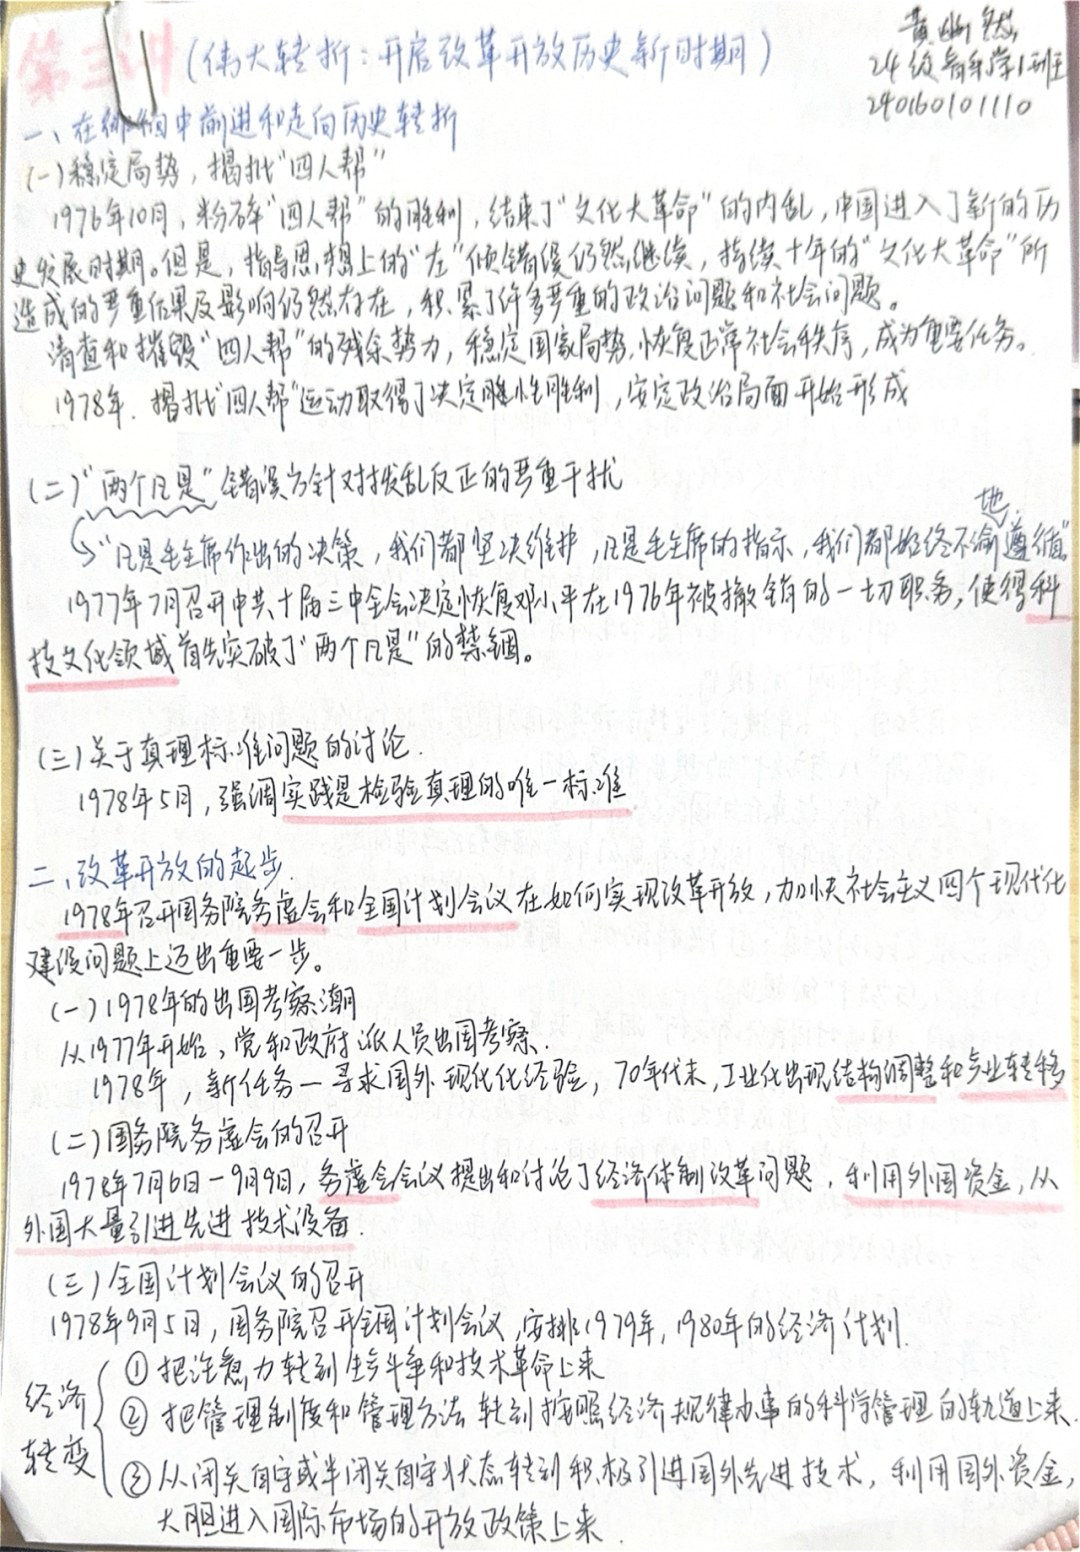 第三讲
(伟大转折：开启改革开放历史新时期)
黄幽然
24级音乐学1班
240160101110
一、在徘徊中前进和走向历史转折
(一)稳定局势，揭批“四人帮”
1976年10月，粉碎“四人帮”的胜利，结束了“文化大革命”的内乱，中国进入了新的历
史发展时期。但是，指导思想上的“左”倾错误仍然继续，持续十年的“文化大革命”所
造成的严重后果及影响仍然存在，积累了许多严重的政治问题和社会问题。
清查和摧毁“四人帮”的残余势力，稳定国家局势，恢复正常社会秩序，成为重要任务。
1978年，揭批“四人帮”运动取得了决定性胜利，安定政治局面开始形成
(二)“两个凡是”错误方针对拨乱反正的严重干扰
“凡是毛主席作出的决策，我们都坚决维护，凡是毛主席的指示，我们都始终不渝地遵循”
1977年7月召开中共十届三中全会决定恢复邓小平在1976年被撤销的一切职务，使得科
技文化领域首先突破了“两个凡是”的禁锢。
(三)关于真理标准问题的讨论.
1978年5月，强调实践是检验真理的唯一标准
二、改革开放的起步.
1978年召开国务院务虚会和全国计划会议在如何实现改革开放，加快社会主义四个现代化
建设问题上迈出重要一步。
(一)1978年的出国考察潮
从1977年开始，党和政府派人员出国考察.
1978年，新任务—寻求国外现代化经验，70年代末，工业化出现结构调整和产业转移
(二)国务院务虚会的召开
1978年7月6日—9月9日，务虚会会议提出和讨论了经济体制改革问题，利用外国资金，从
外国大量引进先进技术设备.
(三)全国计划会议的召开
1978年9月5日，国务院召开全国计划会议，安排1979年，1980年的经济计划.
经济转变
①把注意力转到生产斗争和技术革命上来
②把管理制度和管理方法转到按照经济规律办事的科学管理的轨道上来.
③从闭关自守或半闭关自守状态转到积极引进国外先进技术，利用国外资金，
大胆进入国际市场的开放政策上来.